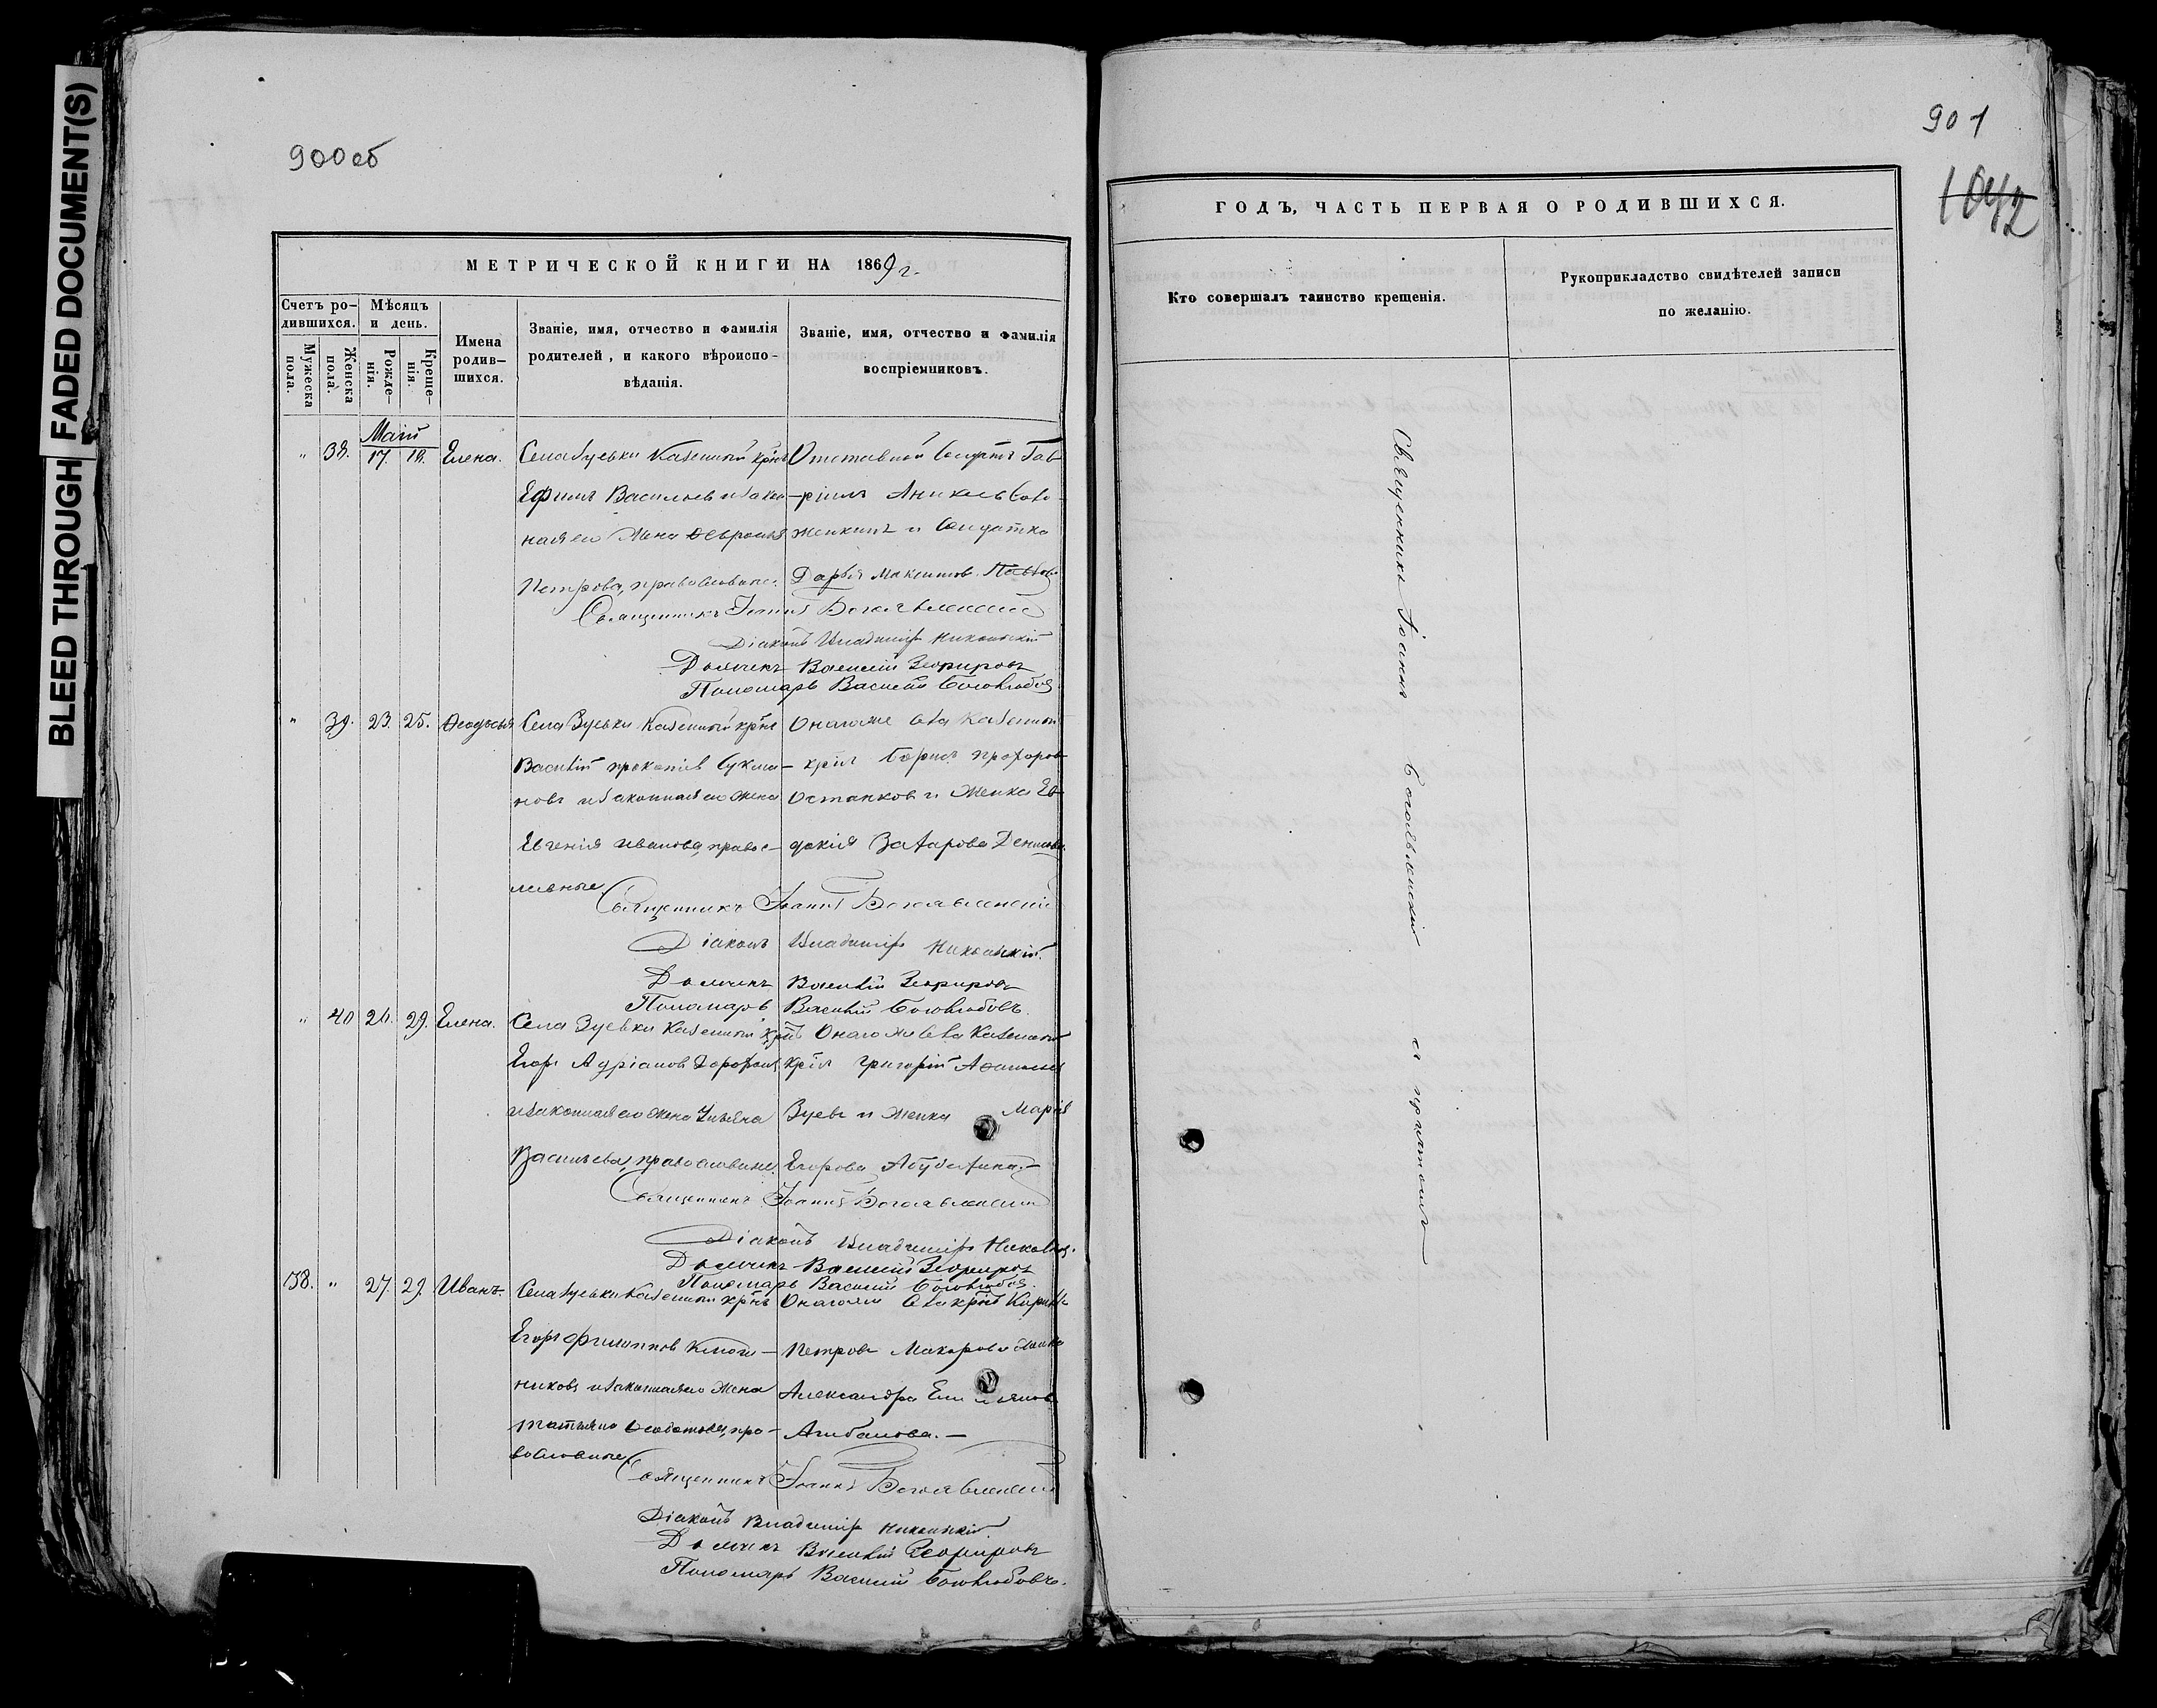 BLEED THROUGH
FADED DOCUMENT(S)
900 об
МЕТРИЧЕСКОЙ КНИГИ НА 1869 г.
Счетъ ро-
дившихся.
Мѣсяцъ
и день.
Мужеска
пола.
Женска
пола.
Рожде-
нія.
Креще-
нія.
Имена
родив-
шихся.
Званіе, имя, отчество и фамилія
родителей, и какого вѣроиспо-
вѣданія.
Званіе, имя, отчество и фамилія
воспріемниковъ.
Маій
" 38. 17. 18. Елена.
Села Зуевки Казенный крнъ
Ефимъ Васильевъ и закон
ная его жена Февронья
Петрова, православные.
Отставной Солдатъ Гав
-ріилъ Аникиевъ
и Солдатка
Дарья Максимов.
Священникъ Іоаннъ Богоявленскій
Діаконъ Владиміръ Никольскій
Дьячекъ Василій Зефировъ
Пономарь Василій Боголюбовъ
" 39. 23. 25. Феодосья
Села Зуевки Казенный крнъ
Василій Прокопіев
новъ и законная его жена
Евгенія Иванова, правос-
лавные.
Онагоже села Казенный
крнъ Борисъ Прохоров
Останков и женка Ев-
докія Захарова Денисова.
Священникъ Іоаннъ Богоявленскій
Діаконъ Владиміръ Никольскій.
Дьячекъ Василій Зефировъ
Пономарь Василій Боголюбовъ.
" 40 26. 29. Елена.
Села Зуевки Казенный крнъ
Егоръ Адріанов Дорофеев
и законная его жена Ульяна
Васильева, православные.
Онагоже села Казенный
крнъ Григорій
Зуевъ и женка Марія
Егорова
Священникъ Іоаннъ Богоявленскій
Діаконъ Владиміръ Никольск.
Дьячекъ Василій Зефировъ
Пономарь Василій Боголюбовъ.
38. " 27. 29. Иванъ.
Села Зуевки Казенный крнъ
Егоръ Филиппов Ключ-
никовъ и законная его жена
Татьяна, пра-
вославные.
Онагоже села крнъ
Петровъ Макаров и женка
Александра Емельянова
Алибанова.—
Священникъ Іоаннъ Богоявленскій
Діаконъ Владиміръ Никольскій.
Дьячекъ Василій Зефировъ
Пономарь Василій Боголюбовъ.
901
1042
ГОДЪ, ЧАСТЬ ПЕРВАЯ О РОДИВШИХСЯ.
Кто совершалъ таинство крещенія.
Рукоприкладство свидѣтелей записи
по желанію.
Священникъ Іоаннъ Богоявленскій с причтомъ